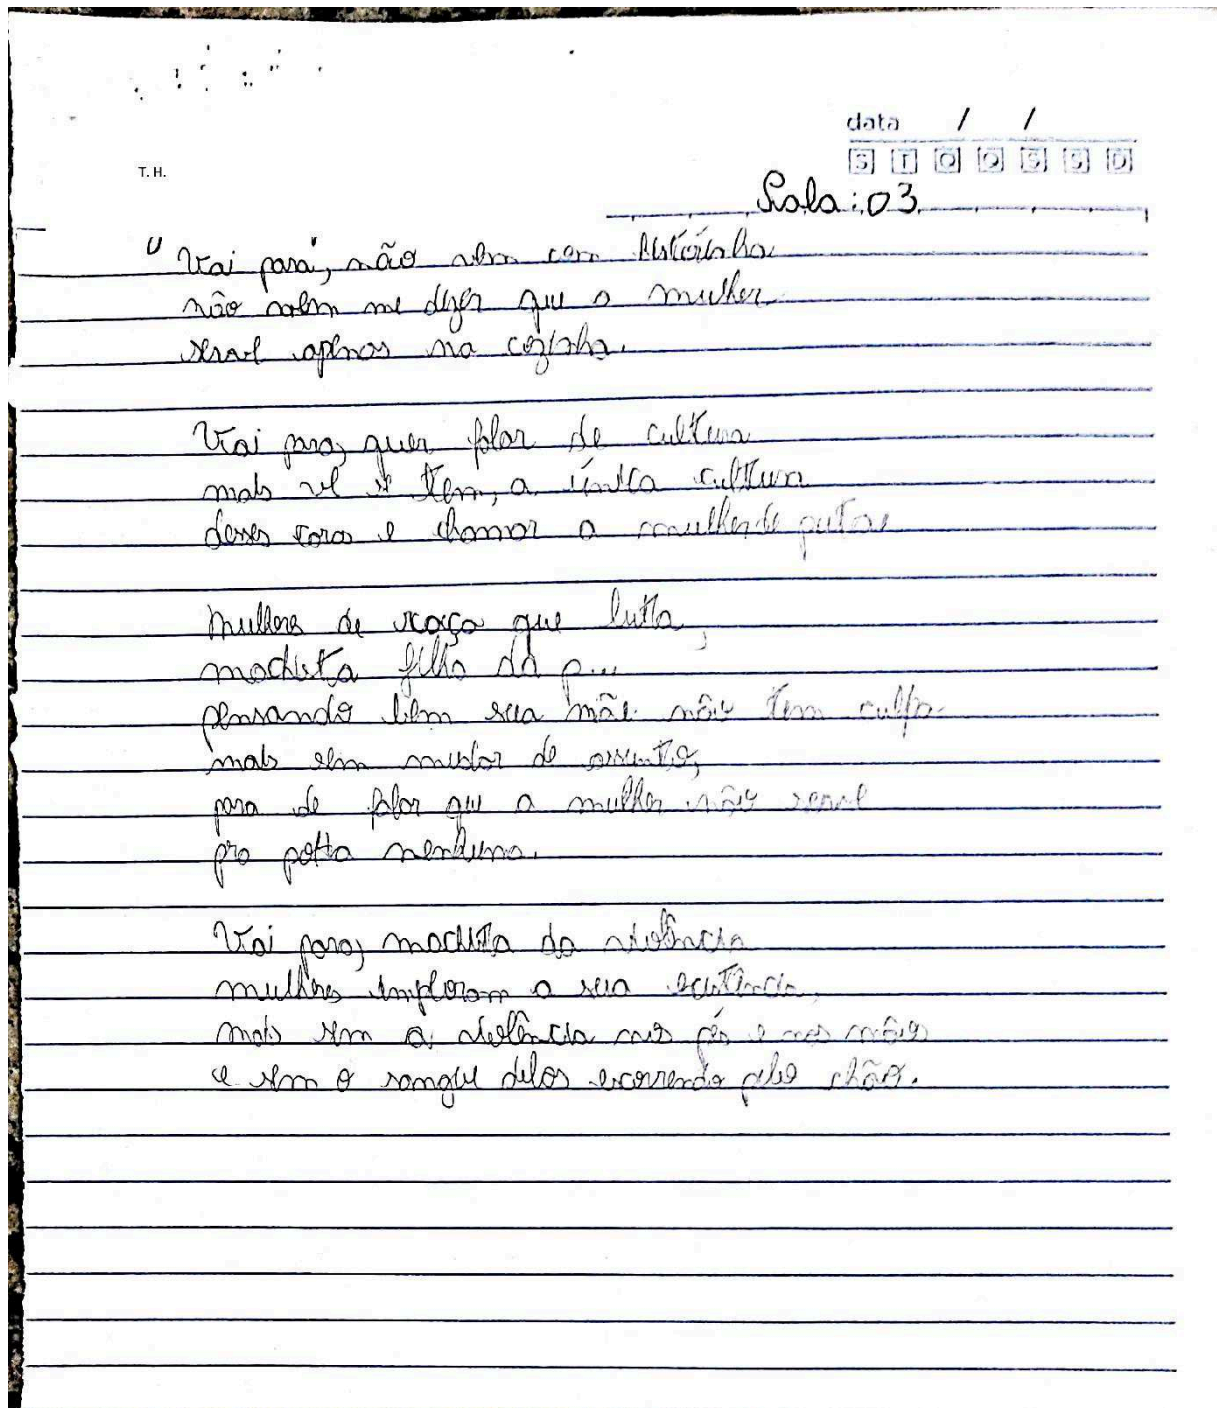 data / /
S T Q Q S S D
T. H.
Sala: 03
"Vai para", não vem com historinha
não vem me dizer que a mulher
serve apenas na cozinha.
Vai para, quer falar de cultura
mais ve se tem, a única cultura
desses caras e chamar a mulher de puta
mulheres de raça que lutta,
machista filho da p...
pensando bem sua mãe não tem culpa
mais sem mudar de assunto,
para de falar que a mulher não serve
pra potta nenhuma.
Vai para, machista da violência
mulheres imploram a sua existência,
mais sem a violência nos pés e nas mãos
e sem o sangue delas escorrendo pelo chão.